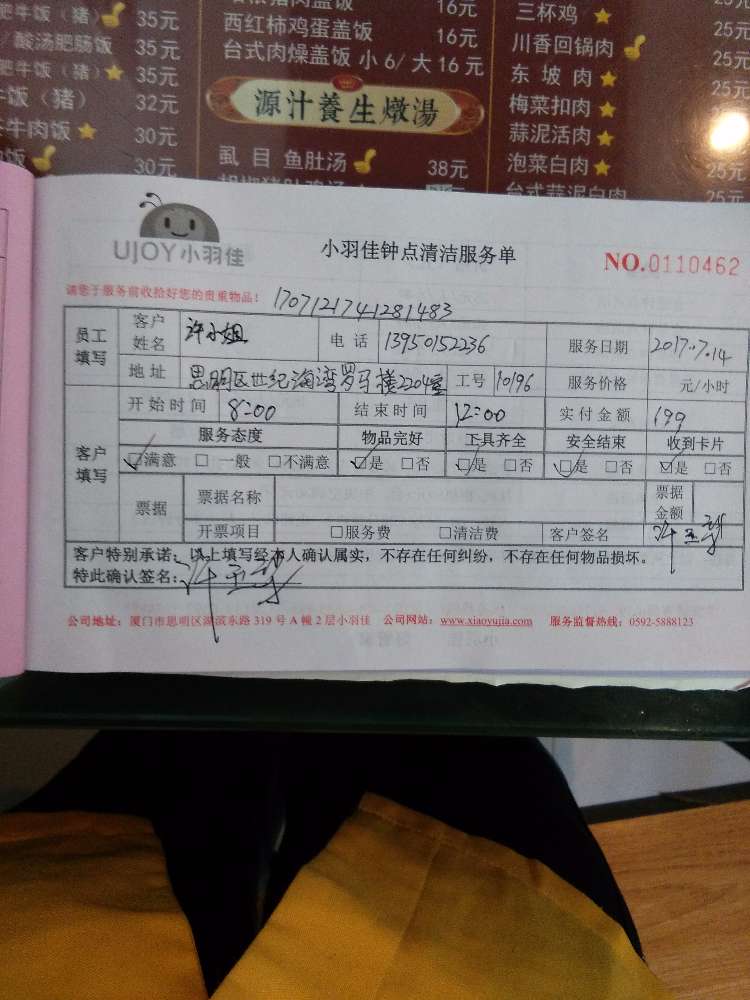 肥牛饭（猪） 35元
/酸汤肥肠饭 35元
肥牛饭（猪） 35元
牛饭（猪） 32元
牛肉饭 30元
饭 30元
肉盖饭 16元
西红柿鸡蛋盖饭 16元
台式肉燥盖饭 小6/大16元
源汁養生燉湯
虱目鱼肚汤 38元
三杯鸡
川香回锅肉 25元
东坡肉 25元
梅菜扣肉 25元
蒜泥活肉 25元
泡菜白肉 25元
台式蒜泥白肉 25元
UJOY小羽佳
小羽佳钟点清洁服务单
NO.0110462
请您于服务前收拾好您的贵重物品！
1707121741281483
员工填写 客户姓名 许小姐 电话 13950152236 服务日期 2017.7.14
地址 思明区世纪海湾罗马楼2204室 工号 10196 服务价格 元/小时
客户填写 开始时间 8:00 结束时间 12:00 实付金额 199
服务态度 物品完好 工具齐全 安全结束 收到卡片
☑满意 □一般 □不满意 ☑是 □否 ☑是 □否 ☑是 □否 ☑是 □否
票据 票据名称 票据金额
开票项目 □服务费 □清洁费 客户签名
客户特别承诺：以上填写经本人确认属实，不存在任何纠纷，不存在任何物品损坏。
特此确认签名：
公司地址：厦门市思明区湖滨东路319号A幢2层小羽佳 公司网站：www.xiaoyujia.com 服务监督热线：0592-5888123